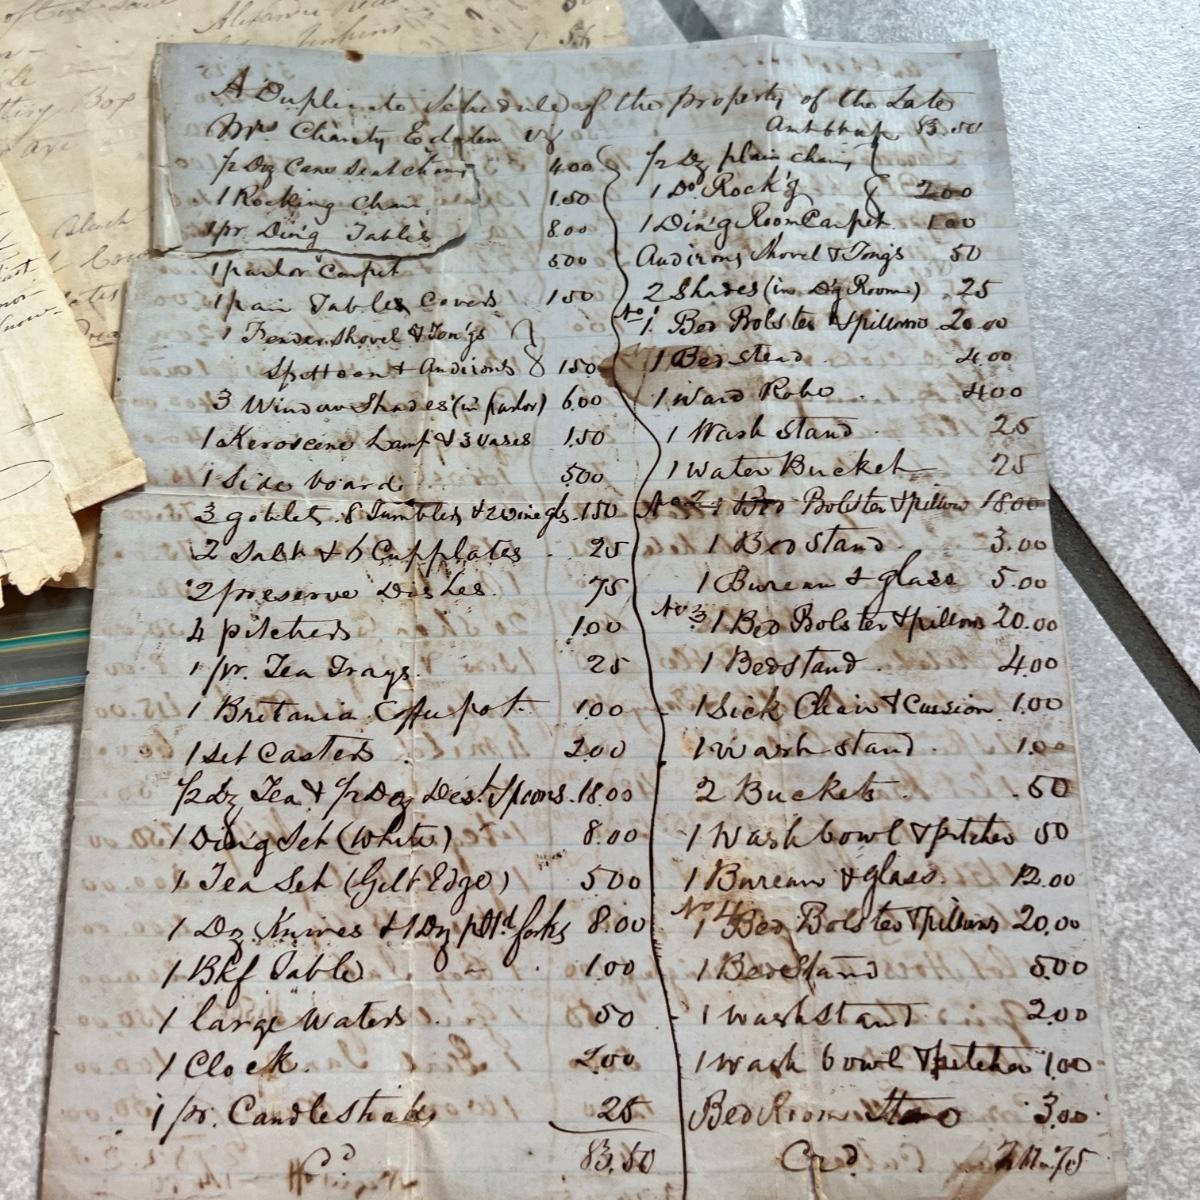 A Duplicate Schedule of the property of the Late
Mrs Charity
1/2 Doz Cane Seat chairs 4.00
1 Rocking Chair 1.50
1 pr. Din'g Tables 8.00
1 parlor Carpet 5.00
1 pair Tables Covers 1.50
1 Fender Shovel & Ton'gs
Spittoon & Andirons 1.50
3 Window Shades (in parlor) 6.00
1 Keroscene Lamp & 3 vases 1.50
1 Side board 5.00
3 goblets 8 Tumblers & 2 wine gls. 1.50
2 Salts & 6 Cupplates 25
2 preserve Dishes 75
4 pitchers 1.00
1 pr. Tea Trays 25
1 Britania Coffee pot 1.00
1 Set Casters 2.00
1/2 dz Tea & 1/2 Doz Des't Spoons 18.00
1 Ding Set (White) 8.00
1 Tea Set (Gilt Edge) 5.00
1 Dz Knives & 1 Dz pltd forks 8.00
1 Bkf Table 1.00
1 large Waters 50
1 Clock 2.00
1 pr. Candlesticks 25
83.50
Amt bht up 83.50
1/2 Dz plain chairs
1 Do Rock'g 2.00
1 Din'g Room Carpet 1.00
Andirons Shovel & Tongs 50
2 Shades (in D'g Room) 25
No 1 1 Bed Bolster & pillows 20.00
1 Bedstead 4.00
1 Ward Robe 4.00
1 Wash stand 25
1 Water Bucket 25
No 2 1 Bed Bolster & pillow 18.00
1 Bedstand 3.00
1 Bureau & glass 5.00
No 3 1 Bed Bolster & pillows 20.00
1 Bedstand 4.00
1 Sick Chair & Cussion 1.00
1 Wash stand 1.00
2 Buckets .50
1 Wash bowl & pitcher 50
1 Bureau & glass 12.00
No 4 1 Bed Bolster & pillows 20.00
1 BedStand 5.00
1 Wash Stand 2.00
1 Wash bowl & pitcher 1.00
Bed Room 3.00